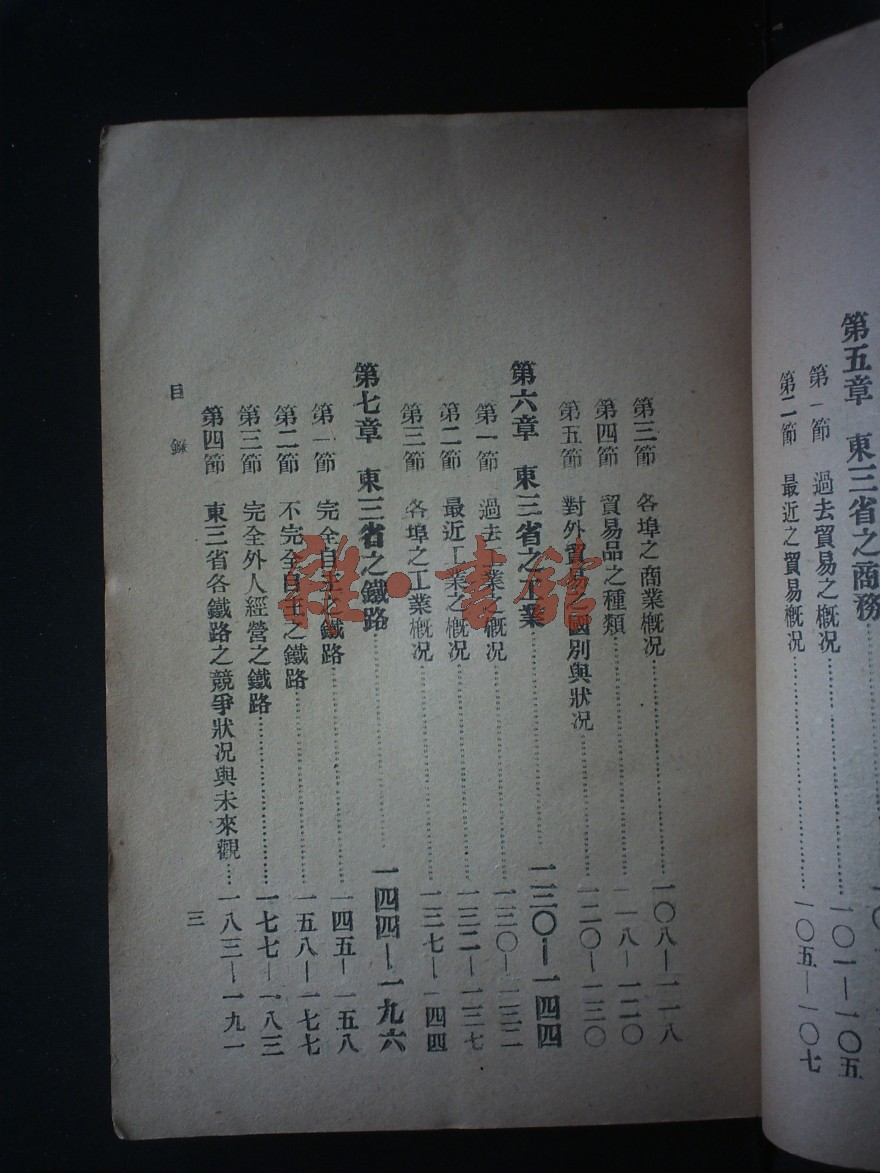 第五章　東三省之商務
第一節　過去貿易之概况……一〇一—一〇五
第二節　最近之貿易概况……一〇五—一〇七
第三節　各埠之商業概况……一〇八—一一八
第四節　貿易品之種類……一一八—一二〇
第五節　對外貿易之國別與狀况……一二〇—一三〇
第六章　東三省之工業……一三〇—一四四
第一節　過去工業之概况……一三〇—一三二
第二節　最近工業之概况……一三二—一三七
第三節　各埠之工業概况……一三七—一四四
第七章　東三省之鐵路……一四四—一九六
第一節　完全自主之鐵路……一四五—一五八
第二節　不完全自主之鐵路……一五八—一七七
第三節　完全外人經營之鐵路……一七七—一八三
第四節　東三省各鐵路之競爭狀况與未來觀……一八三—一九一
目錄
三
雜·書館